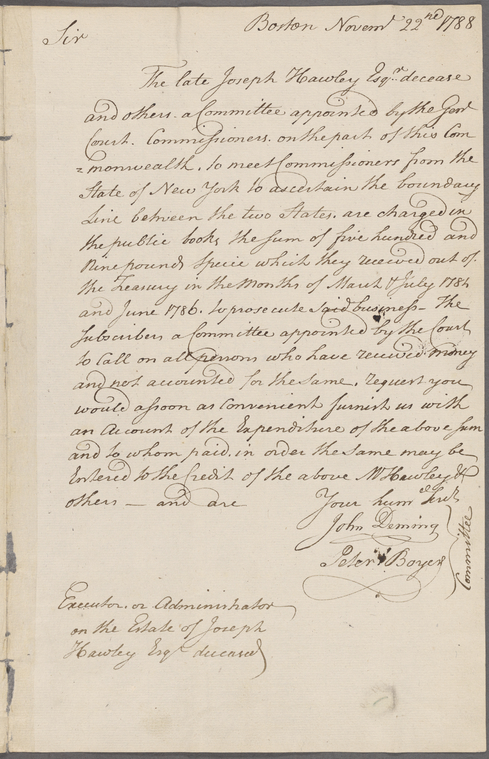 Boston Novemr 22nd 1788
Sir
The late Joseph Hawley Esqr. decease
and others. a Committee appointed by the Genl
Court. Commissioners. on the part of this Com
=monwealth. to meet Commissioners from the
State of New York to ascertain the boundary
Line between the two States. are charged in
the public books the sum of five hundred and
Nine pounds Specie which they received out of
the Treasury in the Months of March & July 1784
and June 1786. to prosecute said business - The
Subscribers a Committee appointed by the Court
to Call on all persons who have received money
and not accounted for the same. request you
would assoon as Convenient furnish us with
an Account of the Expenditure of the above Sum
and to whom paid. in order the same may be
Entered to the Credit of the above Mr Hawley &
others — and are
Your hume Servts
John Deming
Peter Boyer
Committee
Executor. or Administrator
on the Estate of Joseph
Hawley Esqr deceased